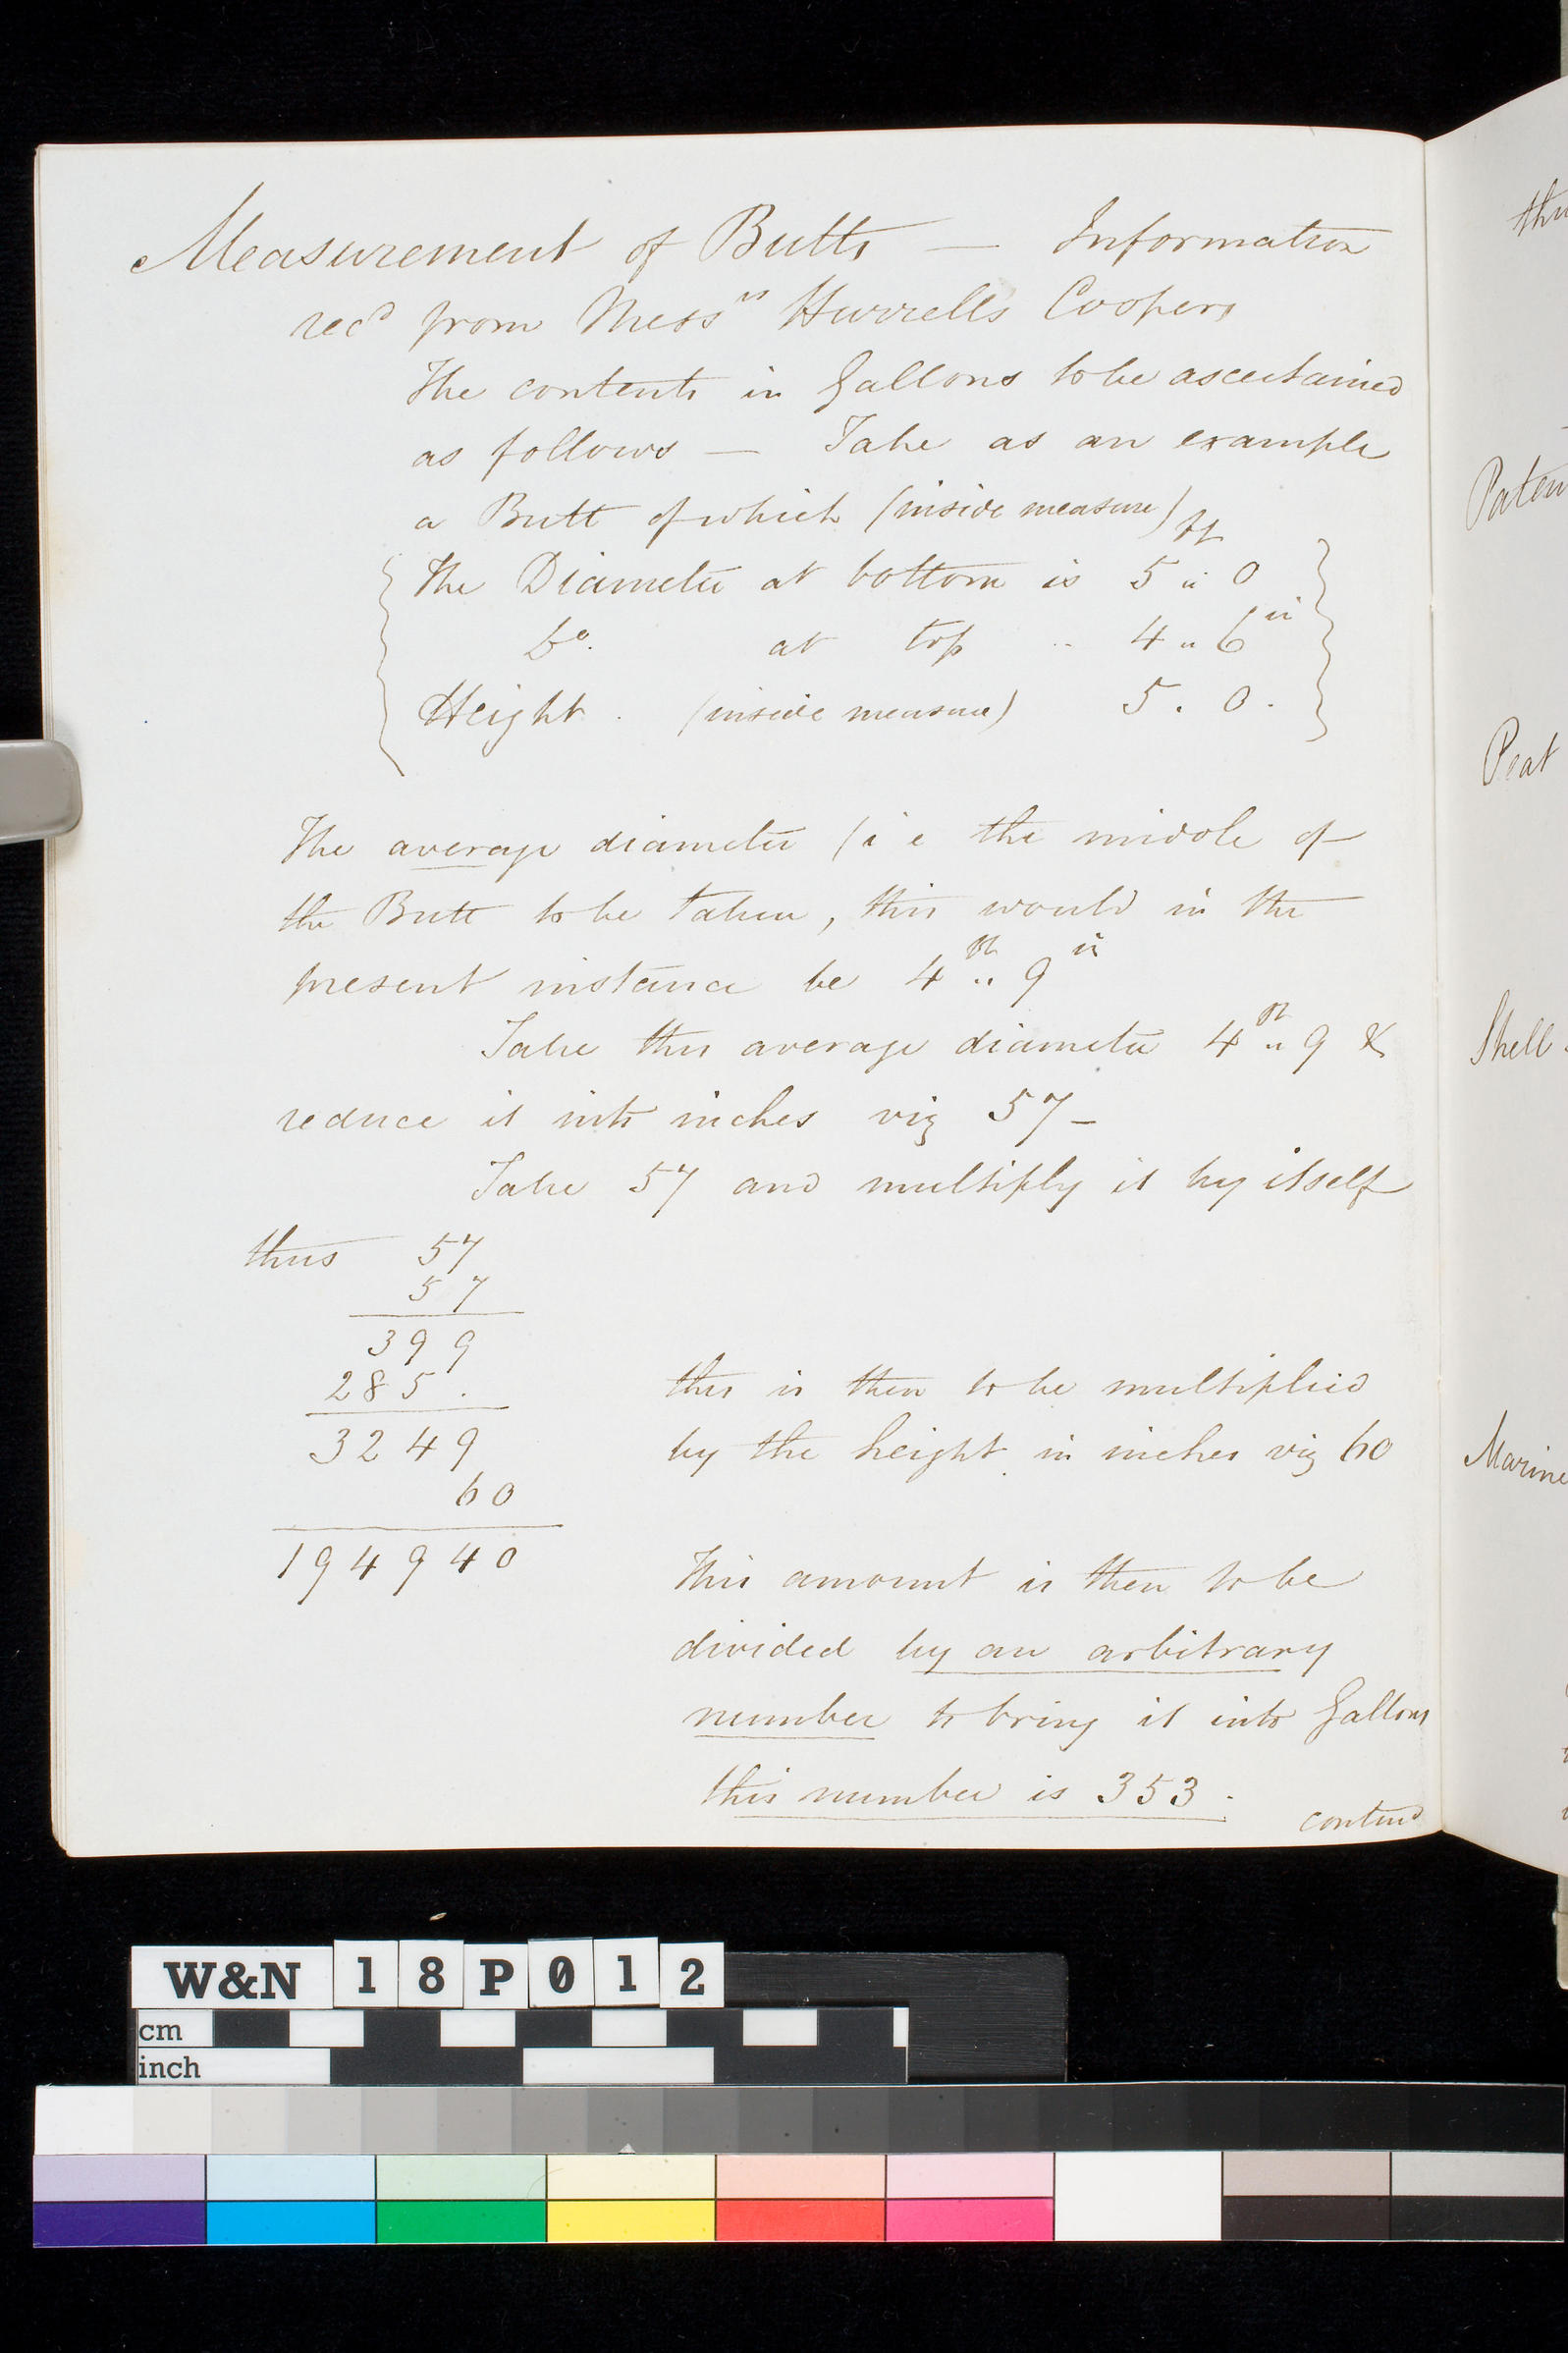 Measurement of Butts — Information
recd from Messrs Hurrells Coopers
The contents in Gallons to be ascertained
as follows — Take as an example
a Butt of which (inside measure)
ft
The Diameter at bottom is 5 " 0
Do. at top " 4 " 6 in
Height . (inside measure) 5 . 0 .
The average diameter (i e the middle of
the Butt to be taken, this would in the
present instance be 4 ft " 9 in
Take this average diameter 4 ft " 9 &
reduce it into inches viz 57 –
Take 57 and multiply it by itself
thus 57
57
399
285 .
3249
60
194940
this is then to be multiplied
by the height in inches viz 60
This amount is then to be
divided by an arbitrary
number to bring it into Gallons
this number is 353 .
contind
Peat
Shell
Marine
W&N 18P012
cm
inch